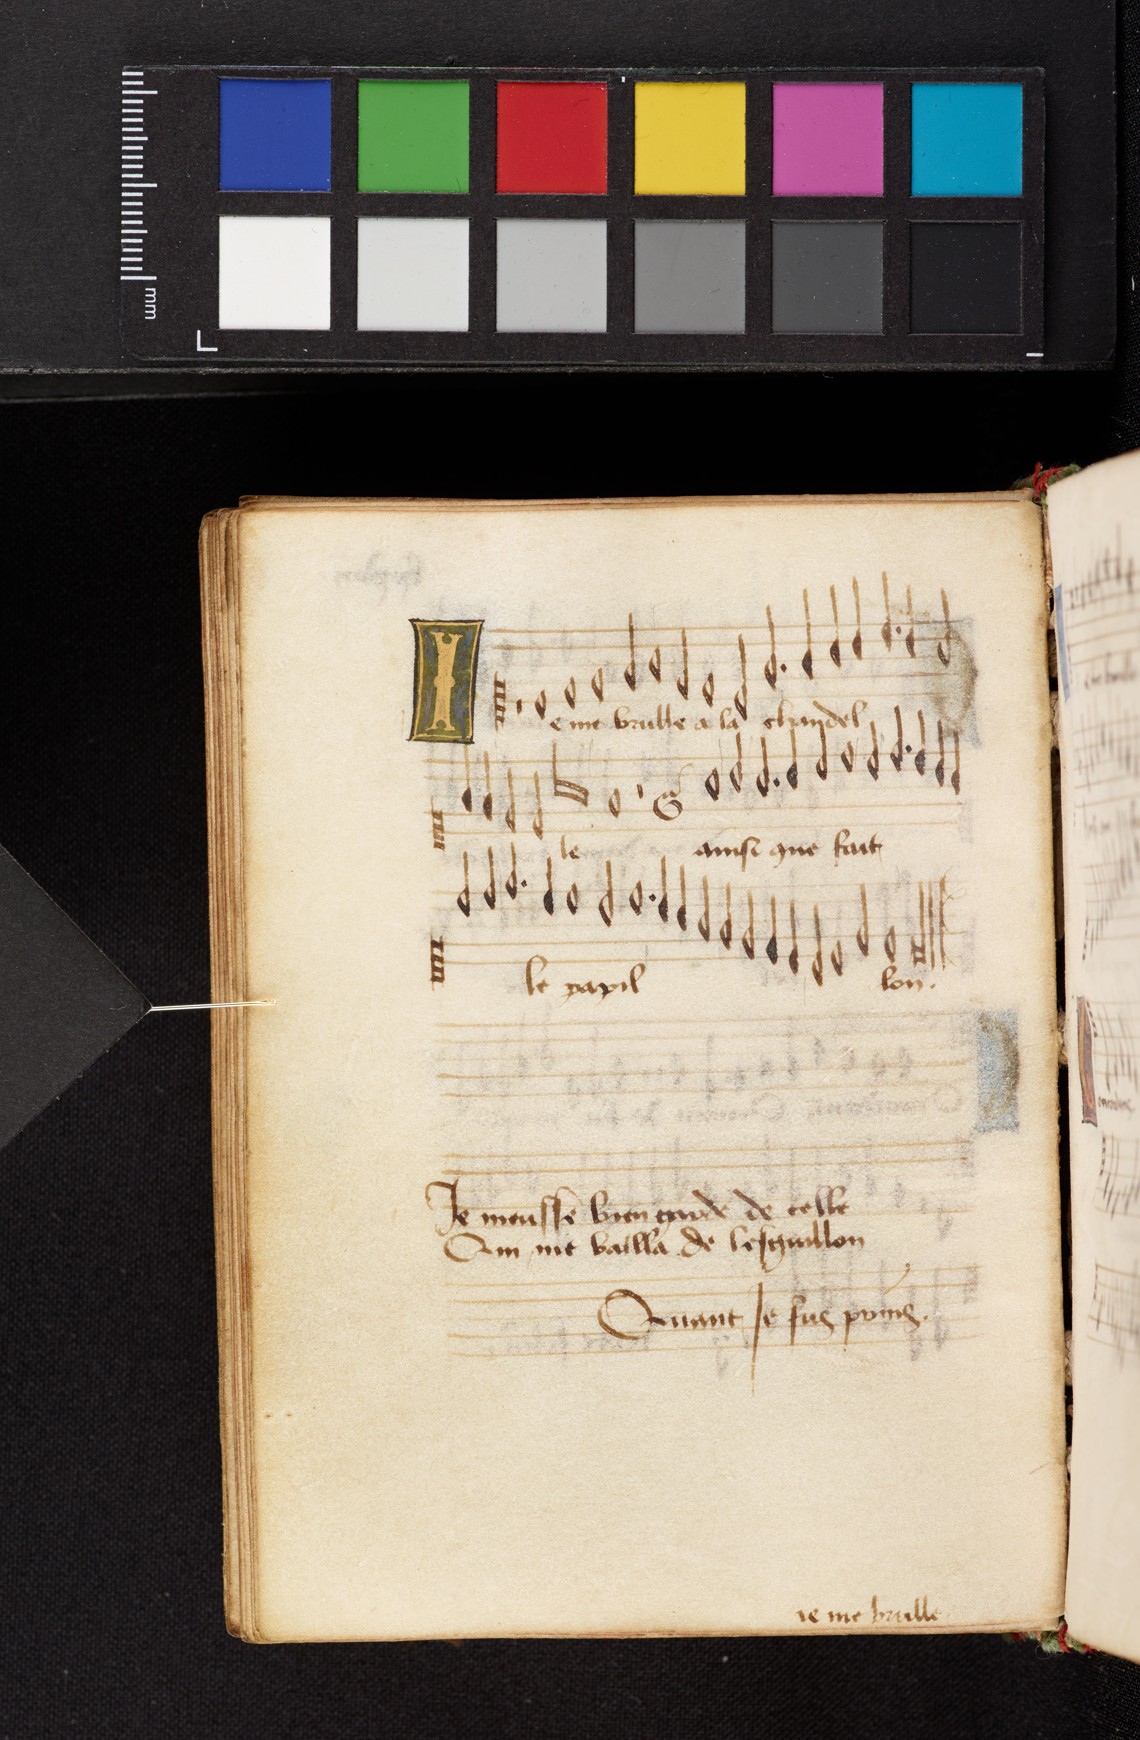 mm
I e me brulle a la chandel
le ainsi que fait
le papil lon.
Je meusse bien garde de celle
Qui me bailla de lesguillon
Quant Je fus prins.
ie me brulle